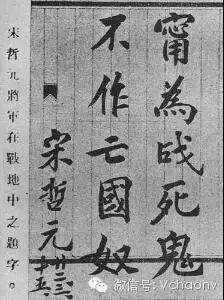 甯為战死鬼
不作亡國奴
宋哲元
宋哲元將軍在戰地中之題字。
微信号: Vchaonv